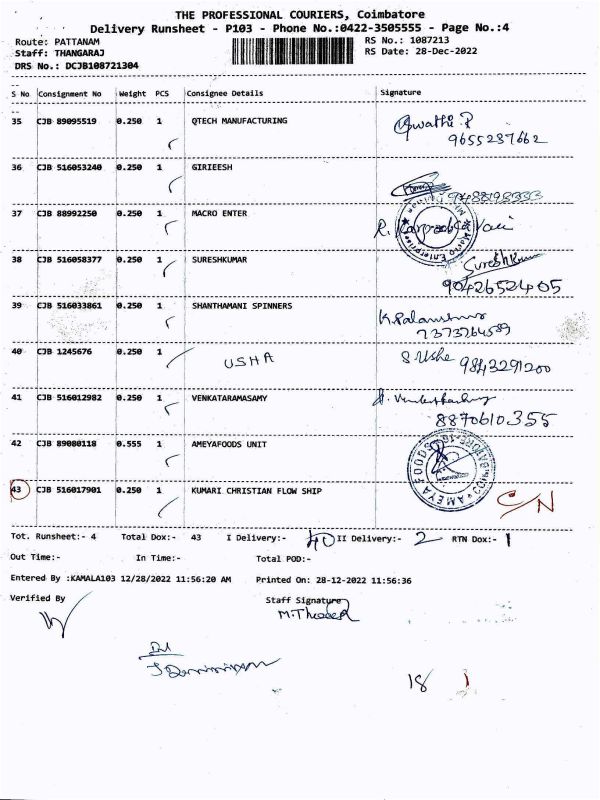 THE PROFESSIONAL COURIERS, Coimbatore
Delivery Runsheet - P103 - Phone No.:0422-3505555 - Page No.:4
Route: PATTANAM RS No.: 1087213
Staff: THANGARAJ RS Date: 28-Dec-2022
DRS No.: DCJB108721304
S No Consignment No Weight PCS Consignee Details Signature
35 CJB 89095519 0.250 1 QTECH MANUFACTURING
9655237662
36 CJB 516053240 0.250 1 GIRIEESH
37 CJB 88992250 0.250 1 MACRO ENTER
38 CJB 516058377 0.250 1 SURESHKUMAR Sureshkumar
9042652405
39 CJB 516033861 0.250 1 SHANTHAMANI SPINNERS
7373764589
40 CJB 1245676 0.250 1 USHA S. Usha 9843291200
41 CJB 516012982 0.250 1 VENKATARAMASAMY
8870610355
42 CJB 89080118 0.555 1 AMEYAFOODS UNIT
AMEYA FOODS
43 CJB 516017901 0.250 1 KUMARI CHRISTIAN FLOW SHIP C/N
Tot. Runsheet:- 4 Total Dox:- 43 I Delivery:- 40 II Delivery:- 2 RTN Dox:- 1
Out Time:- In Time:- Total POD:-
Entered By :KAMALA103 12/28/2022 11:56:20 AM Printed On: 28-12-2022 11:56:36
Verified By Staff Signature
18 1